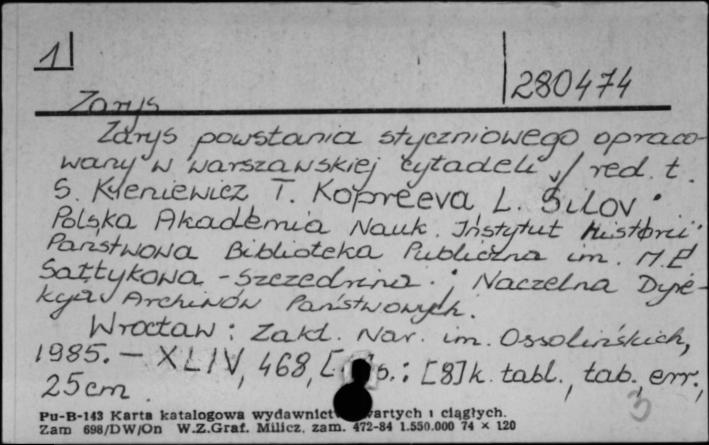 1
280474
Zarys
Zarys powstania styczniowego opraco-
wany w warszawskiej cytadeli / red. t.
S. Kieniewicz T. Kopreeva L. Šilov ;
Polska Akademia Nauk. Instytut Historii
Państwowa Biblioteka Publiczna im. M.E
Sałtykowa - Szczedrina. ; Naczelna Dyre-
kcja Archiwów Państwowych.
Wrocław : Zakł. Nar. im. Ossolińskich,
1985. - XLIV, 468, [ s. : [8] k. tabl., tab., err.,
25 cm.
3
Pu-B-143 Karta katalogowa wydawnictw zwartych i ciągłych.
Zam 698/DW/On W.Z.Graf. Milicz, zam. 472-84 1.550.000 74 × 120